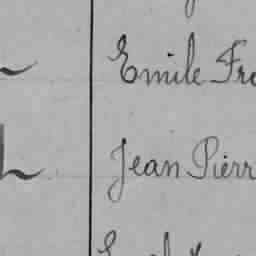 Emile Fr
Jean Pierr